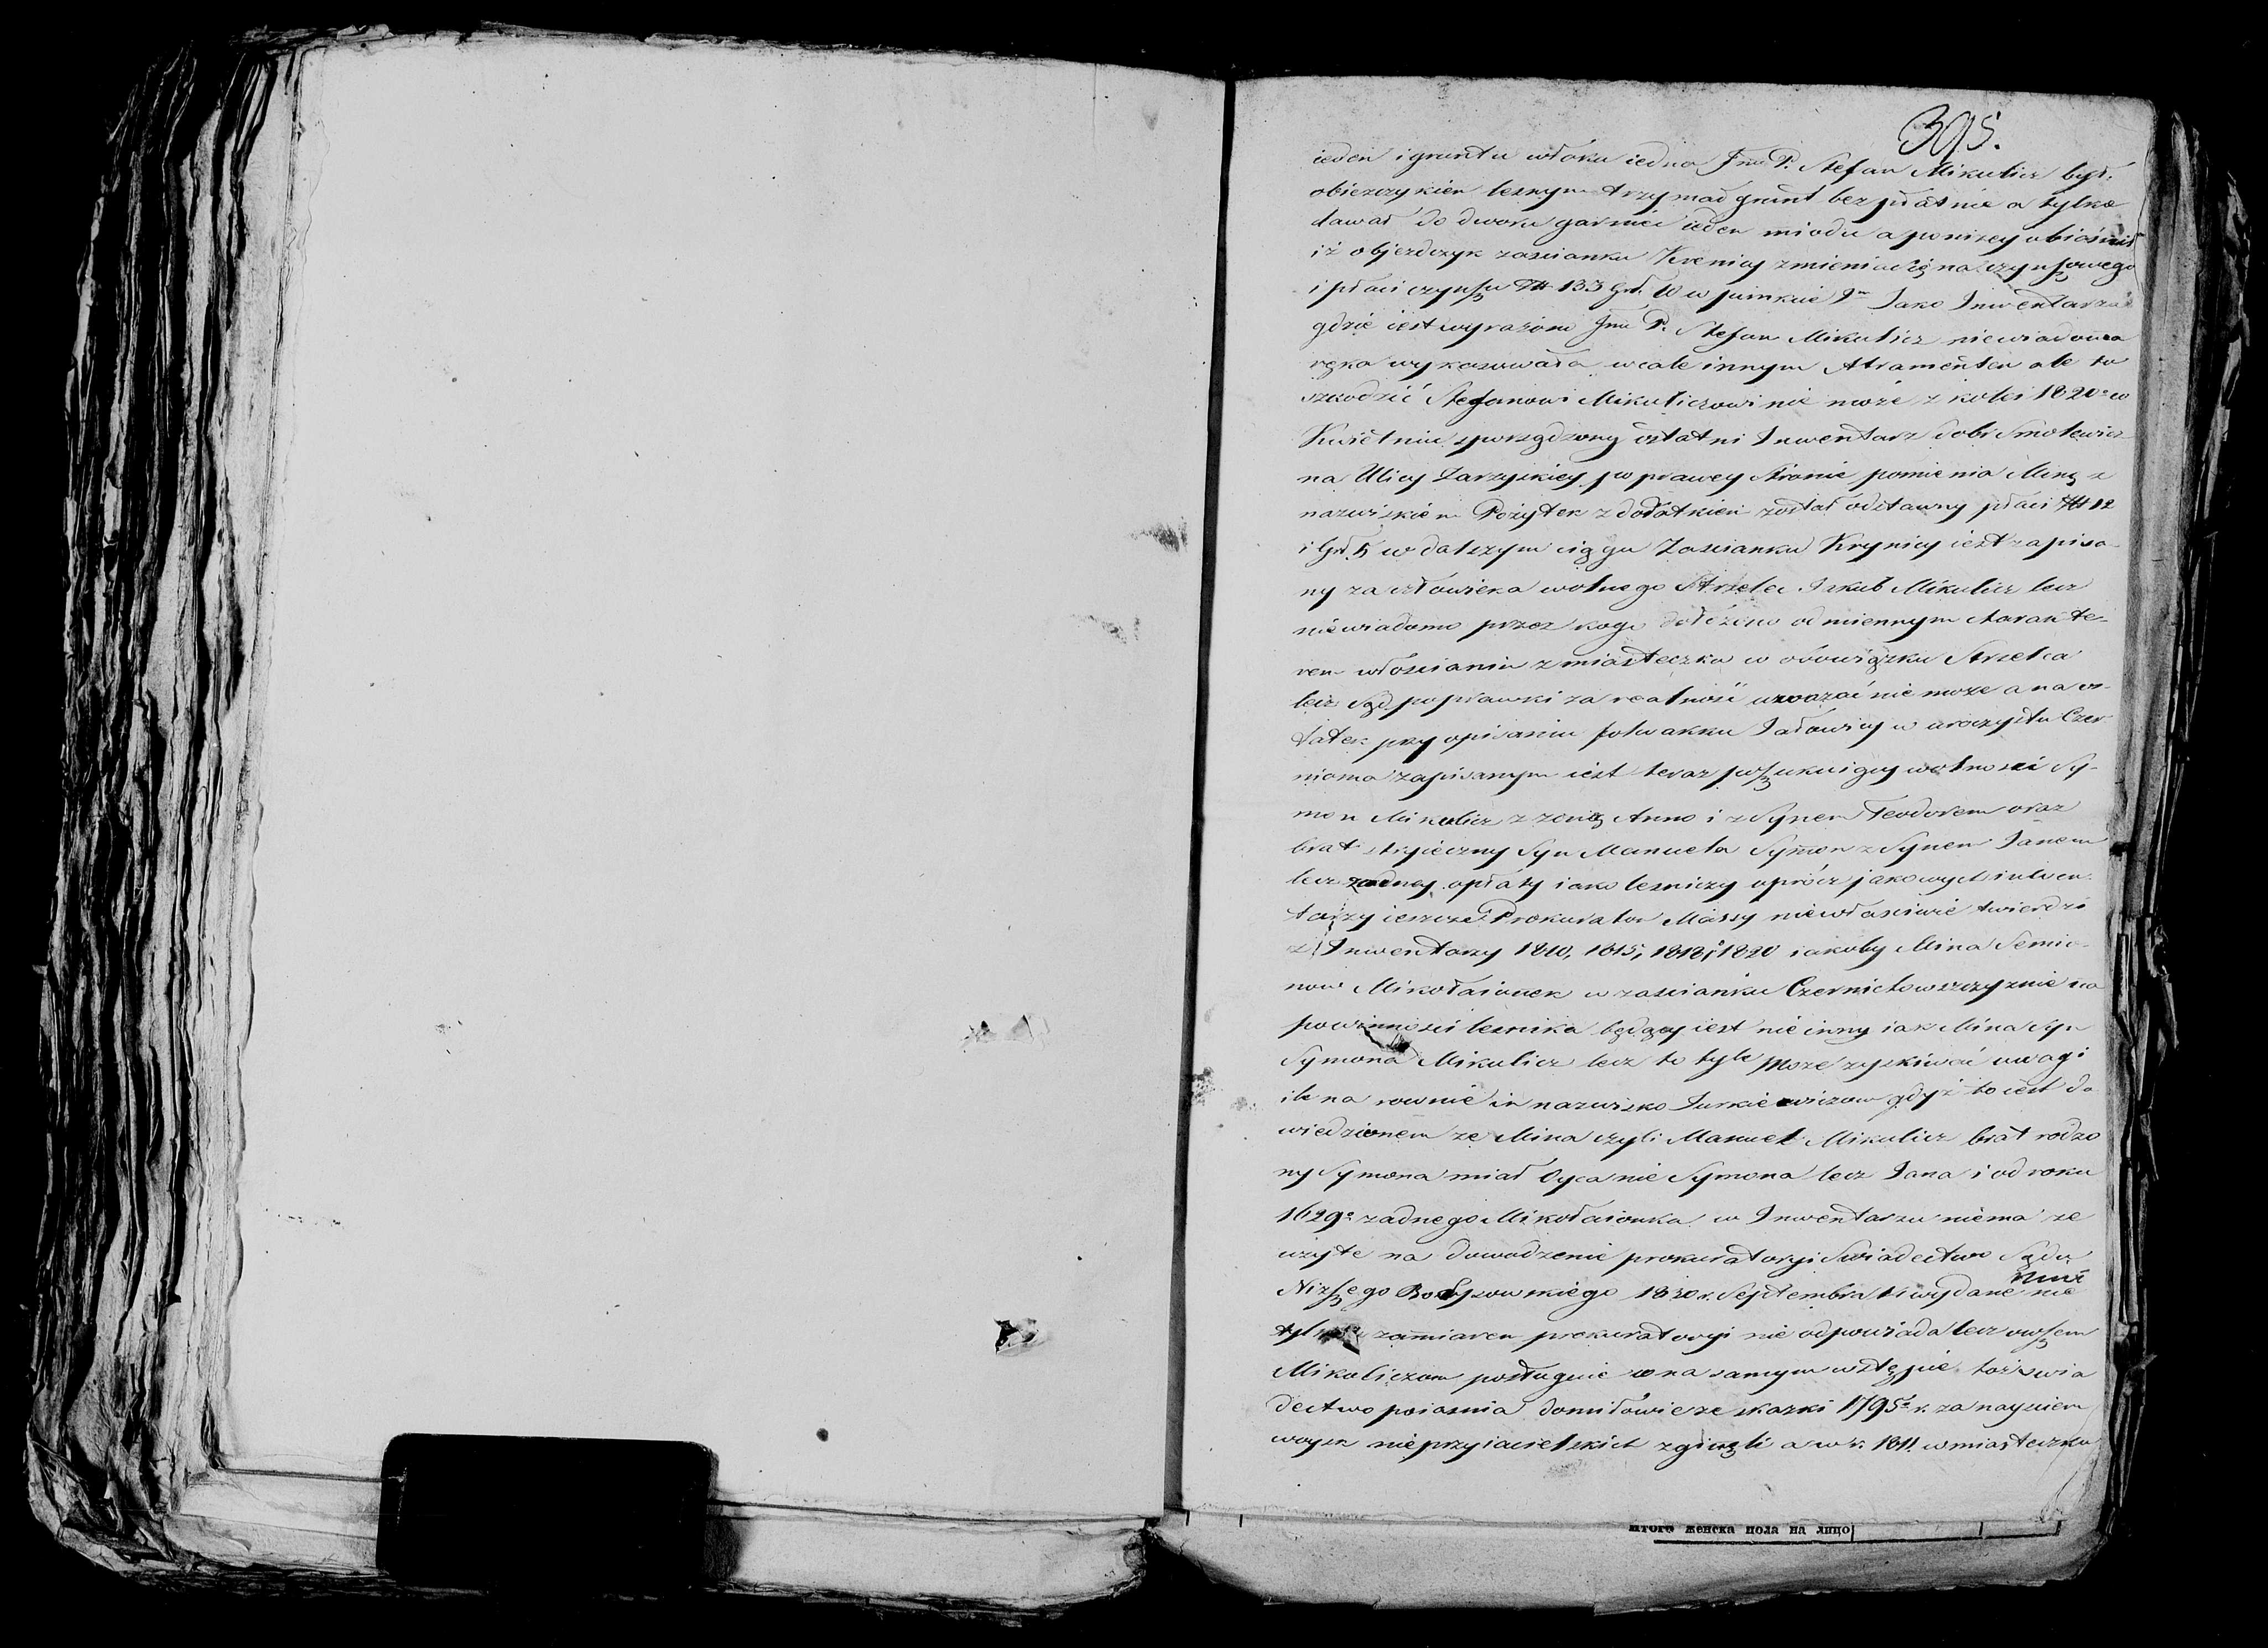 395.
ieden i gruntu włoka iedna Jmć P. Stefan Mikulicz był
obiezczykiem lesnym trzymał grunt bezpłatnie a tylko
dawał do dworu garniec ieden miodu a poniżey obiaśnił
iż objezdczyk zascianku Krenicy zmienia się na czynszowego
i płaci czynszu 133 gr. 10 w punkcie Jako Inwentarza
gdzie iest wyrażono Jmć P. Stefan Mikulicz niewiadoma
ręka wykasowała wcale innym Atramentem ale to
szkodzić Stefanowi Mikuliczowi nie może z kolei 1820 w
Kwietniu sporządzony ostatni Inwentarz dobr Smolewicz
na Ulicy Zarzyskiey po prawey stronie pomienia Miną z
nazwiskiem Pożytek z dodatkiem został odstawny płaci 12
i Gr. 5 w dalszym ciągu Zascianku Krynicy iest zapisa-
ny za człowieka wolnego Strzelec Jakub Mikulicz lecz
niewiadomo przez kogo dołożono odmiennym charakte-
rem włoscianin z miasteczka w obowiązku Strzelca
lecz Sąd poprawki za realność uważać nie może a na os-
tatek przy opisaniu folwarku Jałowicy w uroczysku Czer-
niama zapisanym iest teraz poszukuiący wolności Sy-
mon Mikulicz z zoną Anno i z Synem Teodorem oraz
brat stryieczny Syn Manuela Symon z Synem Janem
lecz zadney opłaty iako lesniczy oprócz jakowych inwen-
tarzy ieszcze Prokurator Massy niewłasciwie twierdzi
z Inwentarzy 1810, 1815, 1818, i 1820 iakoby Mina Semio-
now Mikołaionek w zascianku Czernichowszczyznie na
powinnosci lesnika będący iest nie inny iak Mina Syn
Symona Mikulicz lecz to tyle może zyskiwać uwagi
ile na rownie im nazwisko Jurkiewiczow gdyż to iest do
wiedzionem ze Mina czyli Manuel Mikulicz brat rodzo
ny Symona miał Oyca nie Symona lecz Jana i od roku
1629 zadnego Mikołaionka w Inwentarzu niema ze
użyte na dowodzenie prokuratoryi Swiadectwo Sądu
Nizszego Borysowskiego 1830 r. Septembra wydane nie
zamiarem prokuratoryi nie odpowiada lecz owszem
Mikuliczom posługuie bo na samym wstępie toż swia
dectwo poiasnia domiłowie ze skazki 1795 r. za nayściem
woysk nieprzyiacielskich zginęli a w r. 1811 w miasteczku
итого женска пола на лицо